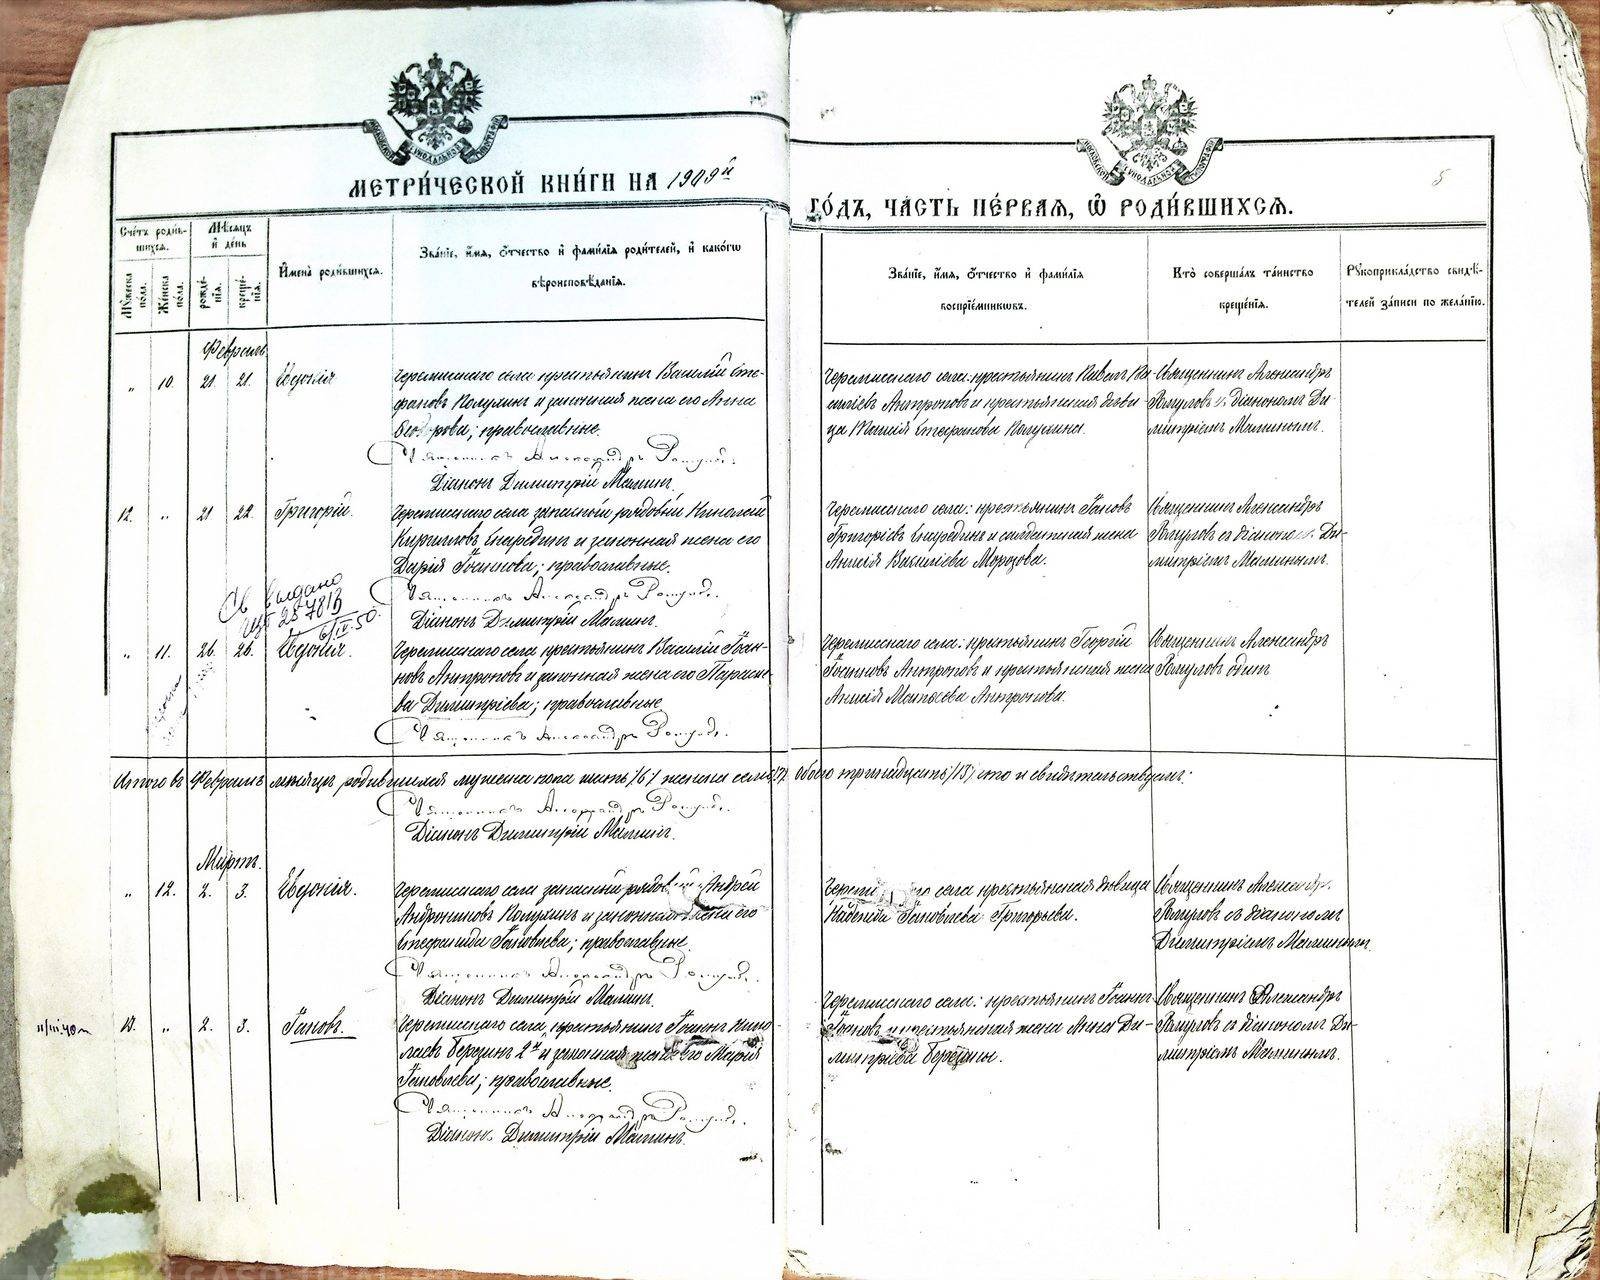 МЕТРИ́ЧЕСКОЙ КНИ́ГИ НА 1909й
ГО́ДЪ, ЧА́СТЬ ПЕ́РВАЯ, Ѡ РОДИ́ВШИХСЯ.
5
Сче́тъ роди́в-
шихся.
Му́жеска по́ла.
Же́нска по́ла.
Мѣ́сяцъ и҆ де́нь
рожде́-
нїя.
креще́-
нїя.
И҆мена̀ роди́вшихся.
Зва́нїе, и҆́мя, ѻ҆́тчество и҆ фами́лїя роди́телей, и҆ како́гѡ
вѣроисповѣ́данїя.
Зва́нїе, и҆́мя, ѻ҆́тчество и҆ фами́лїя
воспрїе́мникѡвъ.
Кто̀ соверша́лъ та́инство
креще́нїя.
Рꙋкоприкла́дство свидѣ́-
телей за́писи по жела́нїю.
Февраль
„ 10. 21. 21. Евдокія
Черемисскаго села крестьянинъ Василій Сте-
фановъ Колухинъ и законная жена его Анна
Ѳеодорова; православные.
Священникъ Александръ
Діаконъ Димитрій Мамин.
Черемисскаго села: крестьянинъ Павелъ Ва-
сильевъ Антроповъ и крестьянская дѣви-
ца Стефанова Колухина.
Священникъ Александръ
съ діакономъ Ди-
митріемъ Маминымъ.
12. „ 21. 22. Григорій.
Черемисскаго села запасный рядовый Николай
Кирилловъ и законная жена его
Дарія; православные.
Священникъ Александръ
Діаконъ Димитрій Маминъ.
Черемисскаго села: крестьянинъ Іаковъ
Григорьевъ и солдатская жена
Анисія Васильева Морозова.
Священникъ Александръ
съ діакономъ Ди-
митріемъ Маминымъ.
Св выдано
257813
6/IV.50.
„ 11. 26. 26. Евдокія.
Черемисскаго села крестьянинъ Василій Іоан-
новъ Антроповъ и законная жена его Параске-
ва Димитріева; православные
Священникъ Александръ
Черемисскаго села: крестьянинъ Георгій
Іоанновъ Антроповъ и крестьянская жена
Анисія Матѳеева Антропова.
Священникъ Александръ
одинъ
Итого въ Февралѣ мѣсяцѣ родившихся мужеска пола шесть /6/ женска семь /7/ обоего тринадцать /13/ что и свидѣтельствуемъ:
Священникъ Александръ
Діаконъ Димитрій Маминъ.
Мартъ.
„ 12. 2. 3. Евдокія.
Черемисскаго села запасный рядовый Андрей
Андрониковъ Колухинъ и законная жена его
Стефанида Іаковлева; православные.
Священникъ Александръ
Діаконъ Димитрій Маминъ.
села крестьянская дѣвица
Іаковлева Григорьева.
Священникъ Александръ
съ діакономъ
Димитріемъ Маминымъ
11/III.40
13. „ 2. 3. Іаковъ.
Черемисскаго села крестьянинъ Іоаннъ Нико-
лаевъ Берсенинъ 2й и законная жена его Марія
Іаковлева; православные.
Священникъ Александръ
Діаконъ Димитрій Маминъ.
Черемисскаго села: крестьянинъ Іоаннъ
и крестьянская жена Анна Ди-
митріева
Священникъ Александръ
съ діакономъ Ди-
митріемъ Маминымъ.